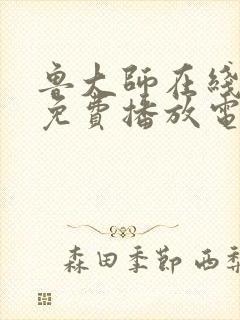 魯大師在綫
免費播放電
森田季節 西